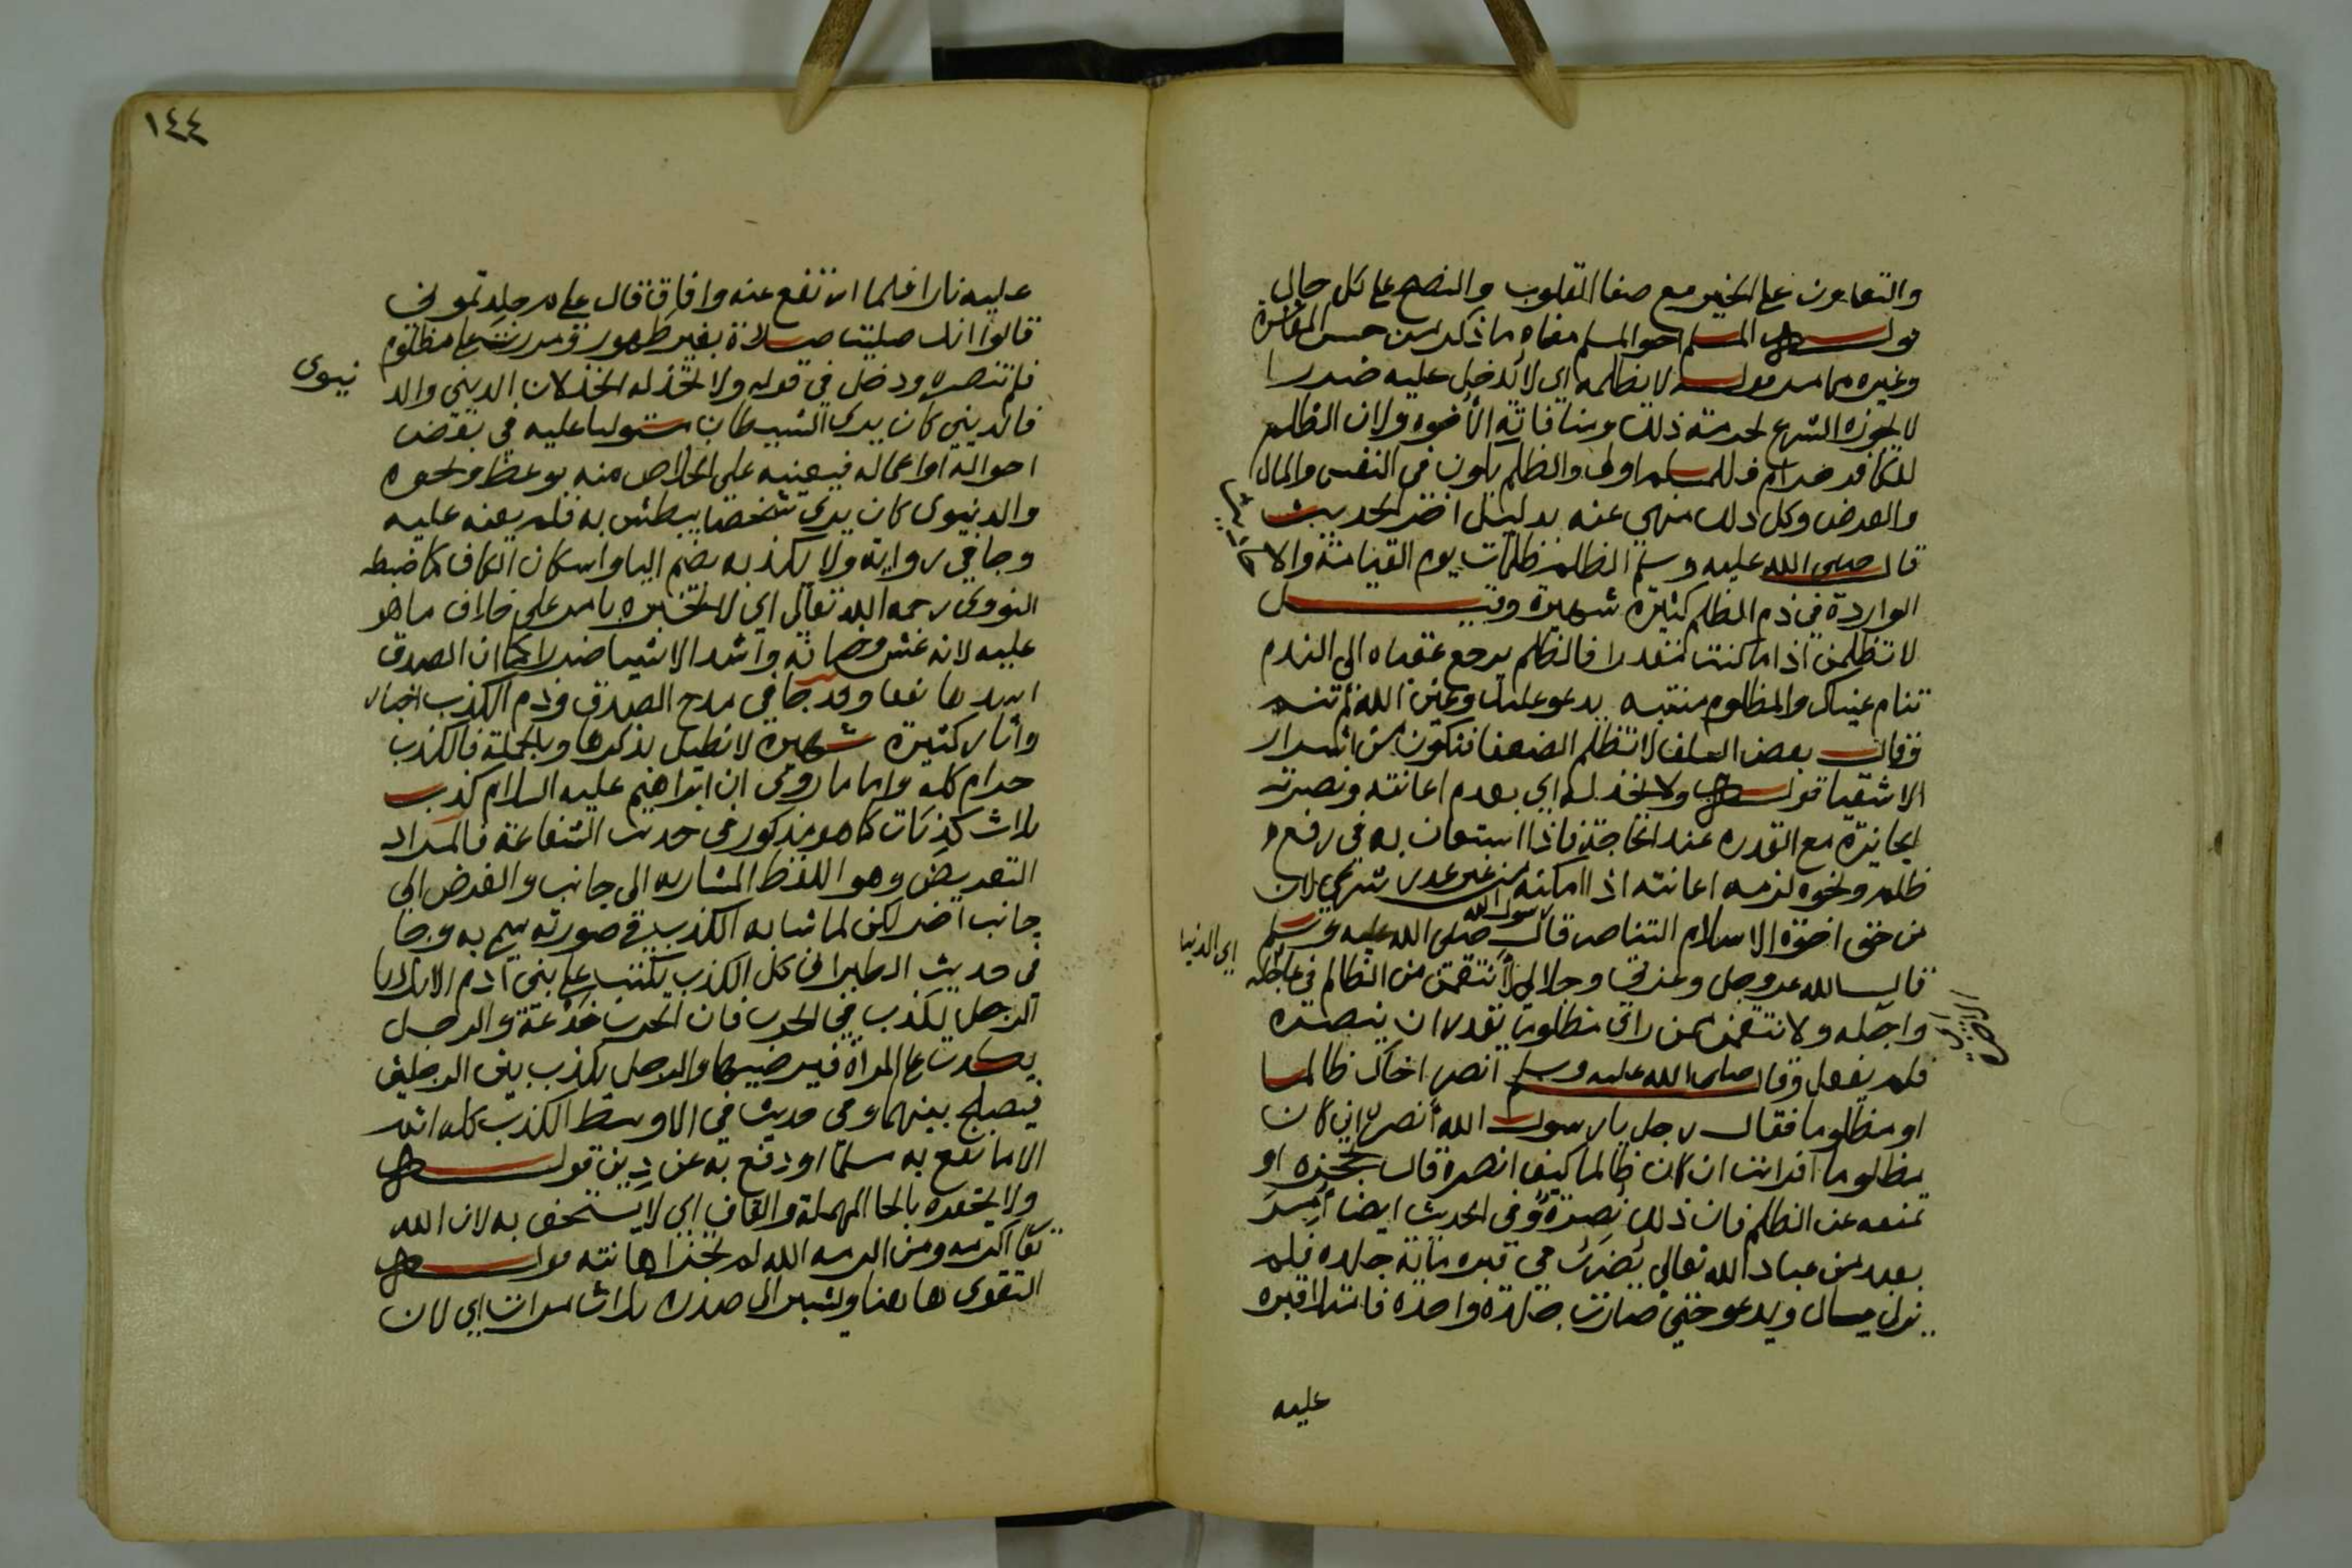 والتعاون على الخير مع صفا القلوب والنصح على كل حال
قوله المسلم اخو المسلم معناه ما ذكر من حسن المعاشرة
وغيره مما مر قوله لا يظلمه اي لا يدخل عليه ضررا
لا يجوزه الشرع لحرمة ذلك ومنافاته الأخوه ولان الظلم
للكافر حرام فللمسلم اولى والظلم يكون في النفس والمال
والعرض وكل ذلك منهي عنه بدليل اخر الحديث
قال صلى الله عليه وسلم الظلم ظلمات يوم القيامة والا
حاديث
الواردة في ذم الظلم كثيرة شهيرة وقيل
لا تظلمن اذا ما كنت مقتدرا فالظلم يرجع عقباه الي الندم
تنام عيناك والمظلوم منتبه يدعو عليك وعين الله لم تنم
وقال بعض السلف لا تظلم الضعفا فتكون من اشرار
الاشقيا قوله ولا يخذله اي بعدم اعانته ونصرته
الجايزة مع القدره عند الحاجة فاذا استعان به في رفع
ظلم ونحوه لزمه اعانته اذا امكنه من غير عذر شرعي لان
من حق اخوة الاسلام التناصر قال رسول الله صلى الله عليه وسلم
قال الله عز وجل وعزتي وجلالي لأنتقمن من الظالم في عاجله
اي الدنيا
واجله ولانتقمن ممن راي مظلوما يقدر ان ينصره
اي الاخرة
فلم يفعل وقال صلى الله عليه وسلم انصر اخاك ظالما
او مظلوما فقال رجل يا رسول الله أنصره ان كان
مظلوما افرايت ان كان ظالما كيف انصره قال تحجزه او
تمنعه عن الظلم فان ذلك نصرة وفي الحديث ايضا أمر
بعبد من عباد الله تعالي يضرب في قبره ماية جلده فلم
يزل يسال ويدعو حتي صارت جلدة واحدة فامتلا قبره
عليه
١٤٤
عليه نارا فلما ارتفع عنه وافاق قال على م جلدتموني
قالوا انك صليت صلاة بغير طهور ومررت على مظلوم
فلم تنصره ودخل في قوله ولا يخذله الخذلان الديني والد
نيوى
فالديني كان يرى الشيطان مستوليا عليه في بعض
احواله او اعماله فيعينه على الخلاص منه بوعظ ونحوه
والدنيوى كان يرى شخصا يبطش به فلم يعنه عليه
وجا في رواية ولا يكذبه بضم اليا واسكان الكاف كما ضبطه
النووى رحمه الله تعالي اي لا يخبره بامر على خلاف ما هو
عليه لانه غش وخيانة واشد الاشيا ضررا كما ان الصدق
اشدها نفعا وقد جا في مدح الصدق وذم الكذب اخبار
وأثار كثيرة شهيرة لا نطيل بذكرها وبالجملة فالكذب
حرام كله واما ما روى ان ابراهيم عليه السلام كذب
ثلاث كذبات كما هو مذكور في حديث الشفاعة فالمراد
التعريض وهو اللفظ المشار به الى جانب والغرض الى
جانب اخر لكن لما شابه الكذب في صورته سمي به وجا
في حديث الطبراني كل الكذب يكتب على بني ادم الا ثلاثا
الرجل يكذب في الحرب فان الحرب خدعة والرجل
يكذب على المرأة فيرضيها والرجل يكذب بين الرجلين
فيصلح بينهما وفي حديث في الاوسط الكذب كله اثم
الا ما نفع به مسلما او دفع به عن دين قوله
ولا يحقره بالحا المهملة والقاف اي لا يستخف به لان الله
تعا اكرمه ومن اكرمه الله لم تجز اهانته قوله
التقوى هاهنا ويشير الى صدره ثلاث مرات اي لان